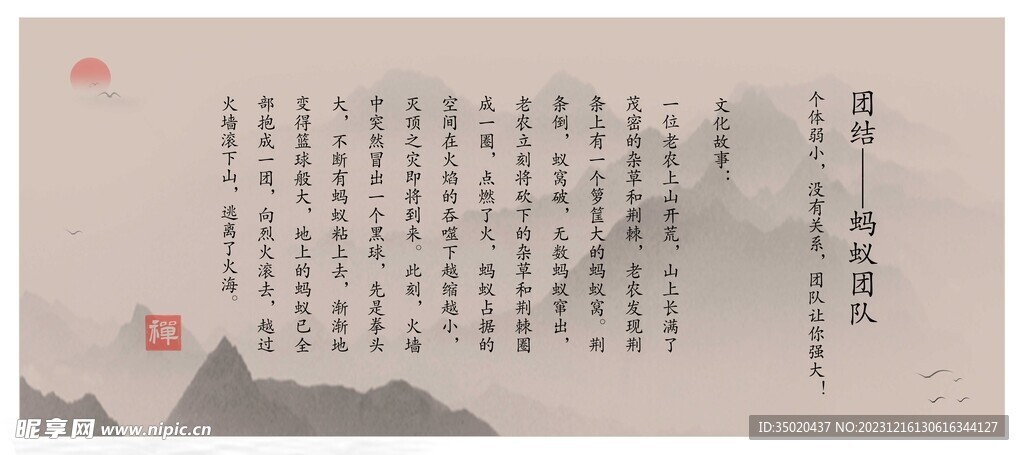 团结——蚂蚁团队
个体弱小，没有关系，团队让你强大！
文化故事：
一位老农上山开荒，山上长满了
茂密的杂草和荆棘，老农发现荆
条上有一个箩筐大的蚂蚁窝。荆
条倒，蚁窝破，无数蚂蚁窜出，
老农立刻将砍下的杂草和荆棘圈
成一圈，点燃了火，蚂蚁占据的
空间在火焰的吞噬下越缩越小，
灭顶之灾即将到来。此刻，火墙
中突然冒出一个黑球，先是拳头
大，不断有蚂蚁粘上去，渐渐地
变得篮球般大，地上的蚂蚁已全
部抱成一团，向烈火滚去，越过
火墙滚下山，逃离了火海。
禪
昵享网 www.nipic.cn
ID:35020437 NO:20231216130616344127